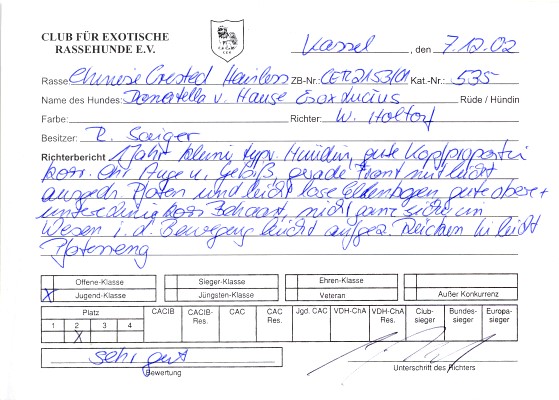 CLUB FÜR EXOTISCHE
RASSEHUNDE E.V.
Kassel, den 7.12.02
Rasse: Chinese Crested Hairless ZB-Nr.: CER 2153/01 Kat.-Nr.: 535
Name des Hundes: Donatella v. Hause Esox Lucius Rüde / Hündin
Farbe: Richter: W. Holtorf
Besitzer: R. Saiger
Richterbericht 1 Jahr kleine typv. Hündin, gute Kopfproportri
korr. Ohr Auge u. Gebiß, gerade Front mit leicht
ausgedr. Pfoten und leicht lose Ellenbogen gute obere +
untere Linie korr. Behaart nicht ganz sicher im
Wesen i. d. Bewegung leicht aufgez. Rücken hi leicht
Pfoteneng
Offene-Klasse Sieger-Klasse Ehren-Klasse
X Jugend-Klasse Jüngsten-Klasse Veteran Außer Konkurrenz
Platz CACIB CACIB-Res. CAC CAC Res. Jgd. CAC VDH-ChA VDH-ChA Res. Club-sieger Bundes-sieger Europa-sieger
1 2 3 4
X
sehr gut
Bewertung Unterschrift des Richters